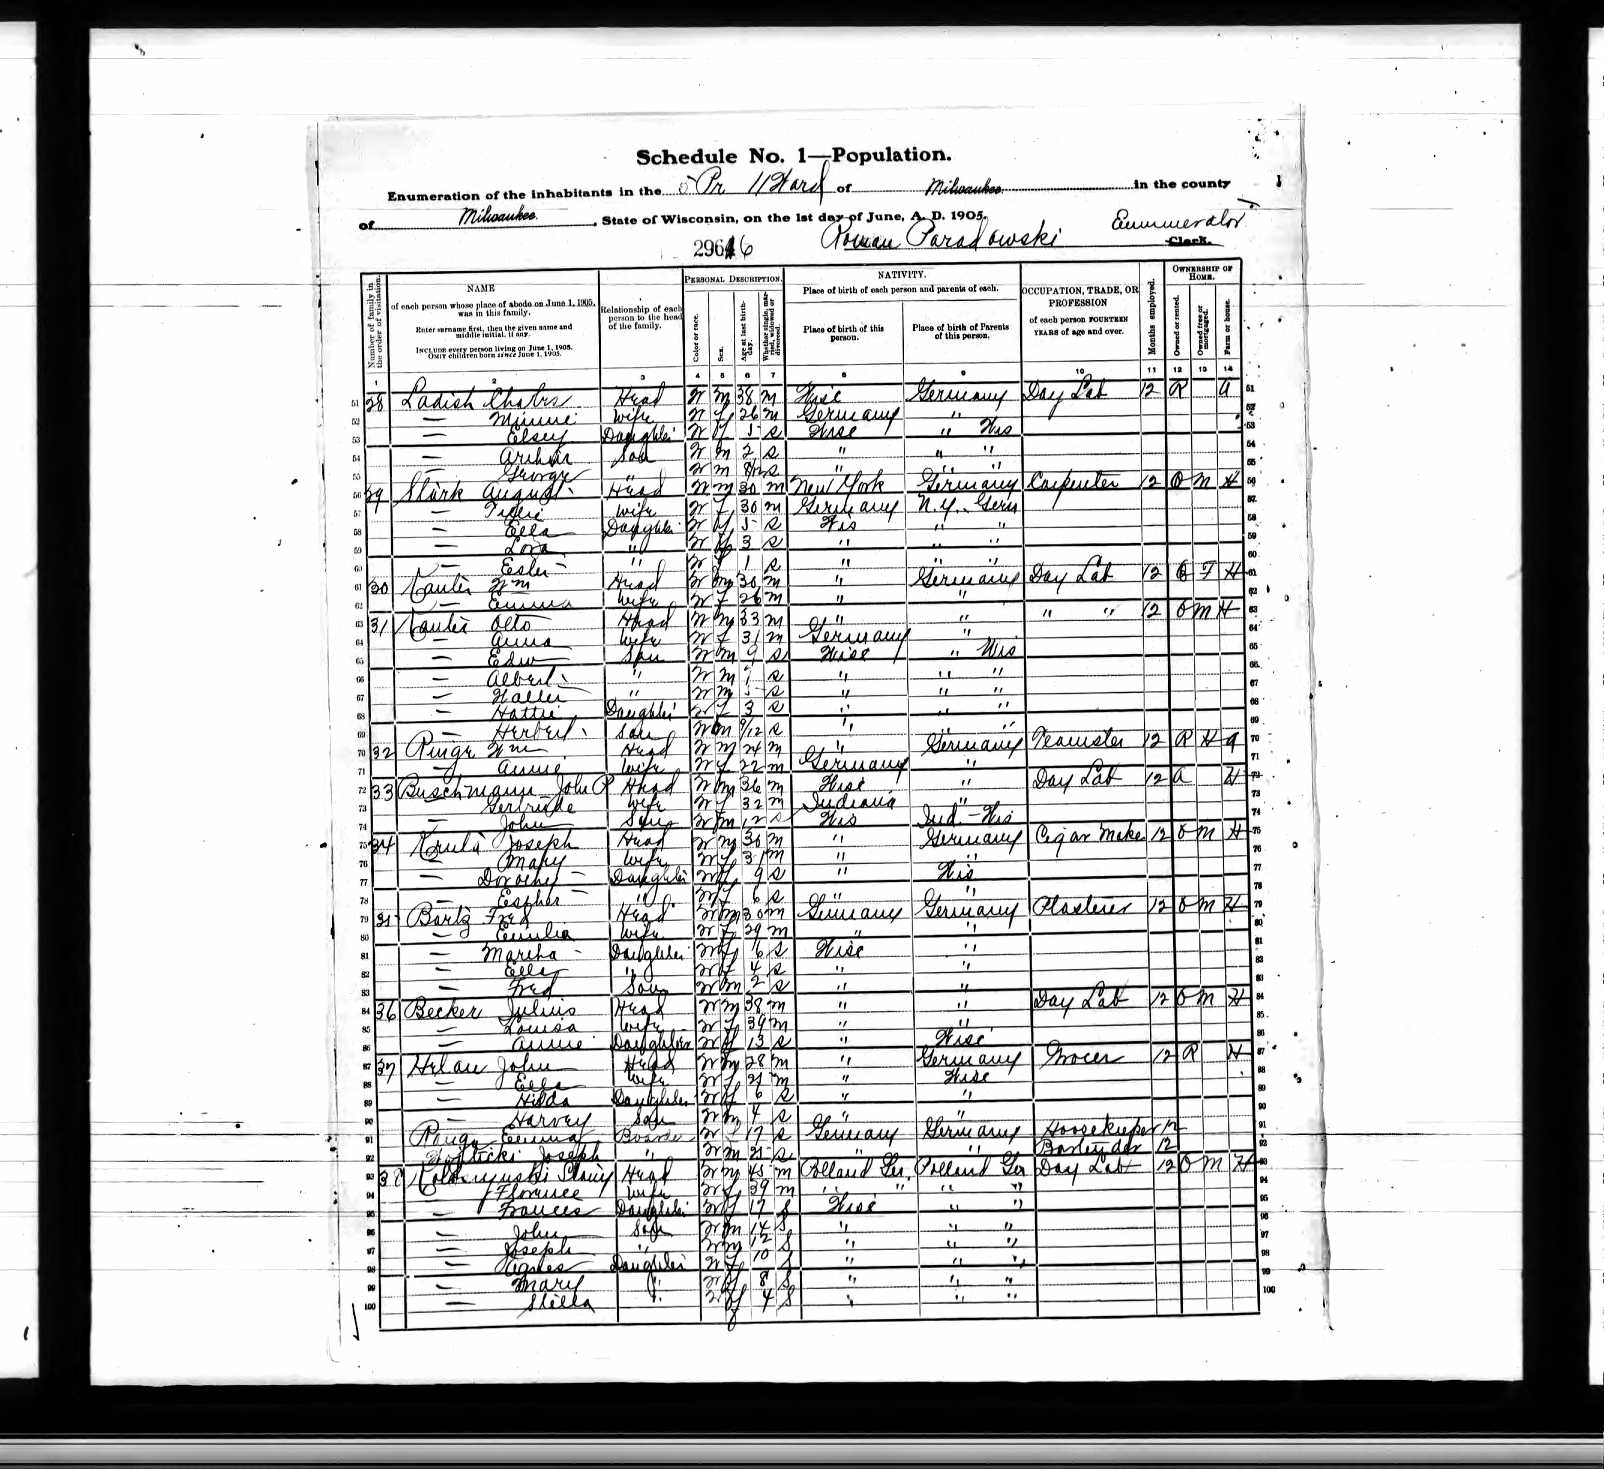 Schedule No. 1—Population.
Enumeration of the inhabitants in the 5 Pr 11 Ward of Milwaukee in the county
of Milwaukee, State of Wisconsin, on the 1st day of June, A. D. 1905.
29616 Roman Paradowski Enumerator Clerk.
Number of family in the order of visitation.
NAME of each person whose place of abode on June 1, 1905, was in this family.
Enter surname first, then the given name and middle initial, if any.
INCLUDE every person living on June 1, 1905. OMIT children born since June 1, 1905.
Relationship of each person to the head of the family.
PERSONAL DESCRIPTION.
Color or race. Sex. Age at last birthday. Whether single, married, widowed or divorced.
NATIVITY.
Place of birth of each person and parents of each.
Place of birth of this person. Place of birth of Parents of this person.
OCCUPATION, TRADE, OR PROFESSION of each person FOURTEEN YEARS of age and over.
Months employed.
OWNERSHIP OF HOME.
Owned or rented. Owned free or mortgaged. Farm or house.
1 2 3 4 5 6 7 8 9 10 11 12 13 14
51 28 Ladish Head W M 38 M Wisc Germany Day Lab 12 R 51
52 — Minnie Wife W F 26 M Germany " 52
53 — Elsey Daughter W F 5 S Wisc " Wis 53
54 — Son W M 2 S " " " 54
55 — George " W M S " " " 55
56 29 Stark August Head W M 30 M New York Germany Carpenter 12 O M H 56
57 — Wife W F 30 M Germany N.Y. Germ 57
58 — Ella Daughter W F 5 S Wis " " 58
59 — Lora " W F 3 S " " " 59
60 — Ester " W F 1 S " " " 60
61 30 Wm Head W M 30 M " Germany Day Lab 12 O F H 61
62 — Emma Wife W F 26 M " " 62
63 31 Otto Head W M 33 M " " " " 12 O M H 63
64 — Anna Wife W F 31 M Germany " 64
65 — Edw Son W M 9 S Wisc " Wis 65
66 — Albert " W M 7 S " " " 66
67 — Walter " W M 5 S " " " 67
68 — Hattie Daughter W F 3 S " " " 68
69 — Herbert Son W M 9/12 S " " " 69
70 32 Ringe Wm Head W M 24 M " Germany Teamster 12 R H 70
71 — Annie Wife W F 22 M Germany " 71
72 33 Buschmann John P Head W M 36 M Wisc " Day Lab 12 H 72
73 — Gertrude Wife W F 32 M Indiana " 73
74 — John Son W M 12 S Wis Ind - Wis 74
75 34 Joseph Head W M 30 M " Germany Cigar Make 12 O M H 75
76 — Mary Wife W F 31 M " " 76
77 — Dorothy Daughter W F 9 S " Wis 77
78 — Esther " W F 6 S " " 78
79 35 Bartz Fred Head W M 30 M Germany Germany Plasterer 12 O M H 79
80 — Emilia Wife W F 29 M " " 80
81 — Martha Daughter W F 6 S Wisc " 81
82 — Ella " W F 4 S " " 82
83 — Fred Son W M 2 S " " 83
84 36 Becker Julius Head W M 38 M " " Day Lab 12 O M H 84
85 — Louisa Wife W F 39 M " " 85
86 — Annie Daughter W F 13 S " Wisc 86
87 37 Hilau John Head W M 28 M " Germany Grocer 12 R H 87
88 — Ella Wife W F M " Wisc 88
89 — Hilda Daughter W F 6 S " " 89
90 — Harvey Son W M 4 S " " 90
91 Emma Boarder W F 17 S Germany Germany Hoosekeeper 12 91
92 Joseph " W M S " " Bartender 12 92
93 38 Head W M 45 M Polland Ger Polland Ger Day Lab 12 O M H 93
94 — Florence Wife W F 39 M " " " " 94
95 — Frances Daughter W F 17 S Wisc " " 95
96 — John Son W M 14 S " " " 96
97 — Joseph " W M 12 S " " " 97
98 — Agnes Daughter W F 10 S " " " 98
99 — Mary " W F 8 S " " " 99
100 — Stella " W F 4 S " " " 100